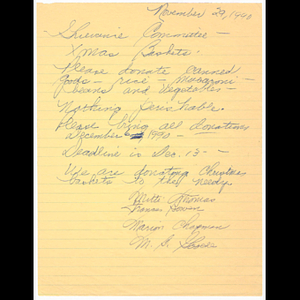 November 29, 1990
Committee -
Xmas Baskets -
Please donate canned
goods - rice - macaroni -
beans and vegetables -
Nothing perishable.
Please bring all donations
December 1990 -
Deadline is Dec. 13 -
We are donating Christmas
baskets to the needy.
Thomas
Frances Bowen
Marion Chapman
M. G.